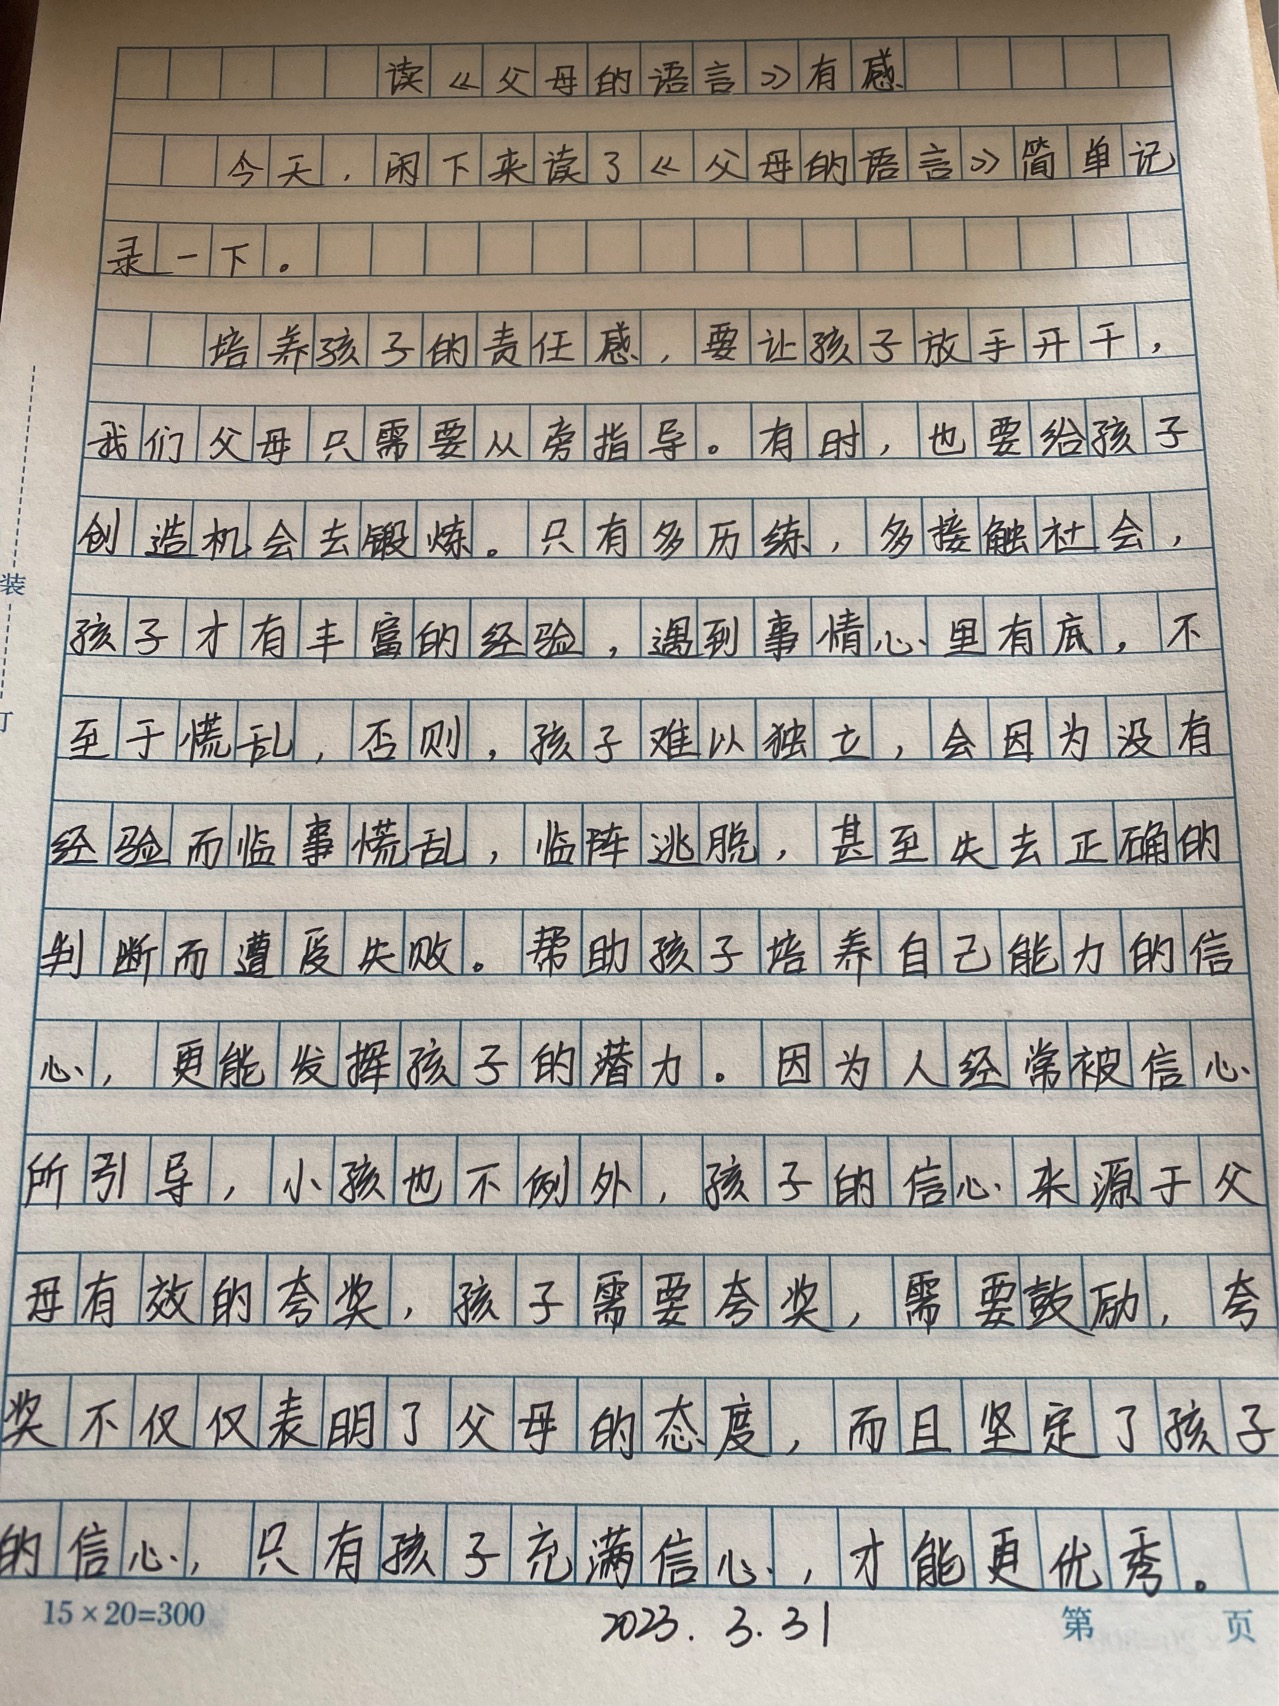 读《父母的语言》有感
今天，闲下来读了《父母的语言》简单记
录一下。
培养孩子的责任感，要让孩子放手开干，
我们父母只需要从旁指导。有时，也要给孩子
创造机会去锻炼。只有多历练，多接触社会，
孩子才有丰富的经验，遇到事情心里有底，不
至于慌乱，否则，孩子难以独立，会因为没有
经验而临事慌乱，临阵逃脱，甚至失去正确的
判断而遭受失败。帮助孩子培养自己能力的信
心，更能发挥孩子的潜力。因为人经常被信心
所引导，小孩也不例外，孩子的信心来源于父
母有效的夸奖，孩子需要夸奖，需要鼓励，夸
奖不仅仅表明了父母的态度，而且坚定了孩子
的信心，只有孩子充满信心，才能更优秀。
15×20=300 2023.3.31 第 页
装
订